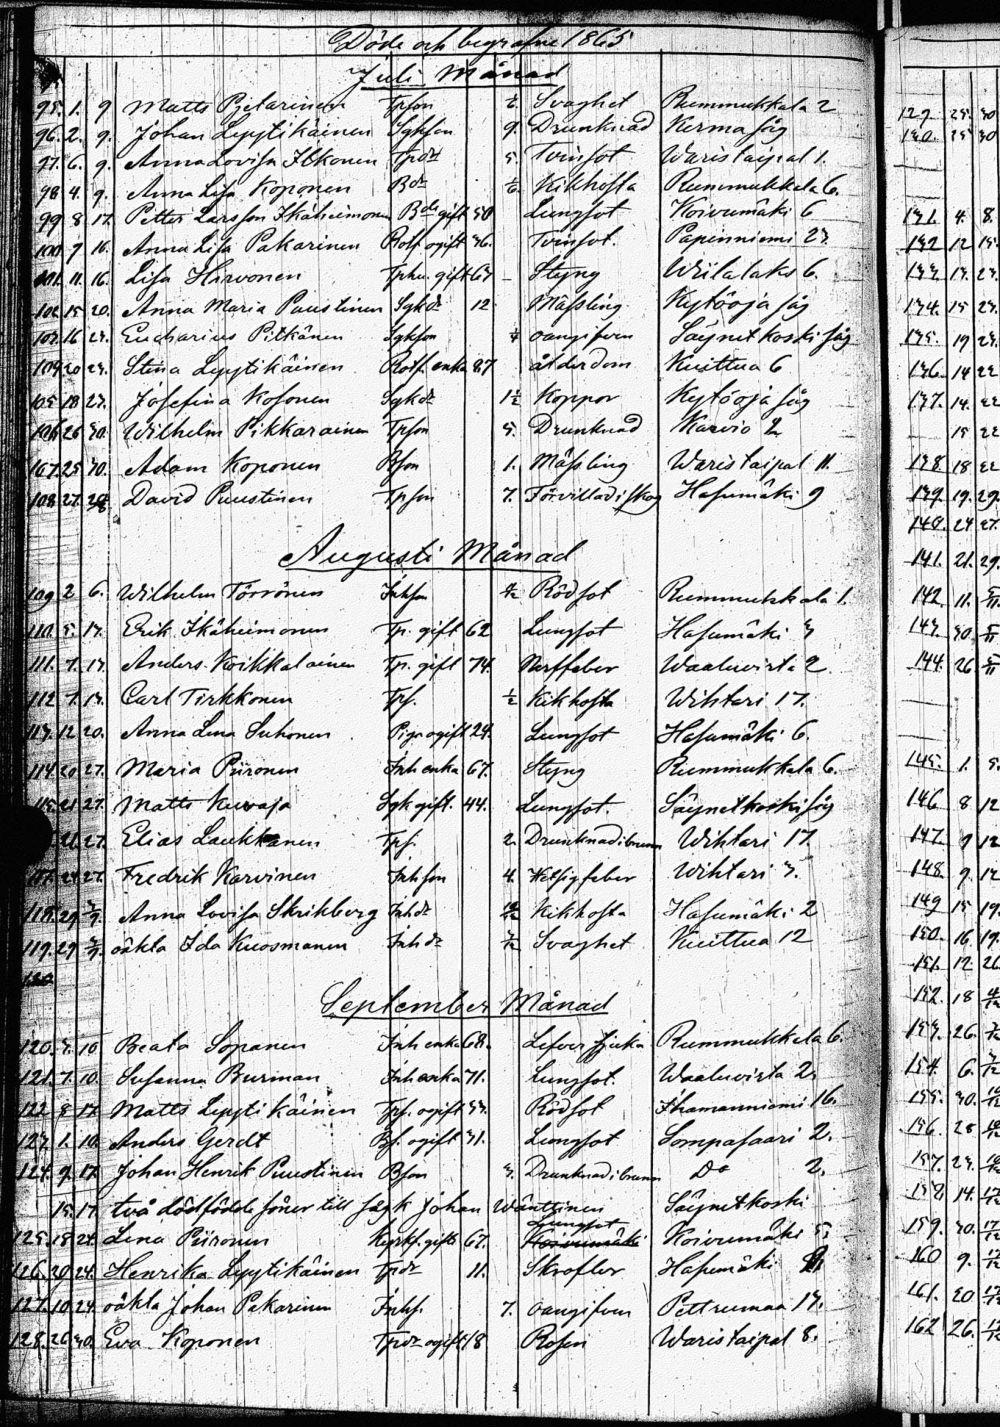 Döde och begrafne 1865
Juli Månad
95. 1. 9 Matts Petarinen Tpson Svaghet Rummukkala 2
96. 2. 9. Johan Lyytikäinen Sgkson 9. Drunknad Kerma såg
97. 6. 9. Anna Lovisa Ilkonen Tpdr 5. Tvinsot Waristaipal 1.
98 4. 9. Anna Lisa Koponen Bdr Kikhosta Rummukkala 6.
99 8 17. Petter Larsson Ikäheimonen Bde gift 50 Lungsot Koivumäki 6
100. 7 16. Anna Lisa Pakarinen Rotf ogift 36. Tvinsot. Papinniemi 23.
101. 11. 16. Lisa Hirvonen gift 67 Styng Wiilalaks 6.
102. 15 20. Anna Maria Puustinen Sgkdr 12. Mässling Kytöoja såg
103. 16 23. Eucharius Pitkänen Sgkson oangifven Säynetkoski såg
104. 20 23. Stina Lyytikäinen Rotf. enka 87 ålderdom Kuittua 6
105 18 23. Josefina Kosonen Sgkdr 1½ Koppor Kytöoja såg
106. 26 30. Wilhelm Pikkarainen Tpson 5. Drunknad Karvio 2
107. 25 30. Adam Koponen Bson 1. Mässling Waristaipal 11.
108. 27. David Puustinen Tpson 7. Förvillad i skog Hasumäki 9
Augusti Månad
109 2 6. Wilhelm Törrönen Inhson Rödsot Rummukkala 1.
110. 5. 13. Erik Ikäheimonen Tp. gift 62 Lungsot Hasumäki 3
111. 7. 13. Anders Koikkalainen Tp. gift 74. Nerffeber Waaluvirta 2
112 7. 13. Carl Tirkkonen Tps. ½ Kikhosta Wihtari 17.
113. 12 20. Anna Lena Suhonen Piga ogift 24. Lungsot Hasumäki 6.
114. 20 27. Maria Piironen Inh enka 67. Styng Rummukkala 6.
115. 21 27. Matts Kuvaja Sgk gift. 44. Lungsot. Säynetkoski såg
21. 27. Elias Laukkanen Tps. 2. Drunknad i brunn Wihtari 17.
117. 24 27. Fredrik Karvinen Inhson 4. Hetsig feber Wihtari 3.
118. 29 3/9. Anna Lovisa Skrikberg Inhdr Kikhosta Hasumäki 2
119. 29 3/9. oäkta Ida Kuosmanen Inhdr Svaghet Kuittua 12
120
September Månad
120. 3. 10 Beata Sopanen Inh enka 68. Lefversjuka Rummukkala 6.
121. 7. 10. Susanna Burman Inh enka 71. Lungsot. Waaluvirta 2.
122 8 17. Matts Lyytikäinen Tps. ogift 53. Rödsot Ihamanniemi 16.
123. 1. 10. Anders Gerdt Bs. ogift 31. Lungsot Sompasaari 2.
124. 9. 17. Johan Henrik Puustinen Bson 3. Drunknad i brunn Do 2.
15. 17. två dödfödde söner till sågk Johan Wänttinen Säynetkoski
125. 18 24. Lena Piironen gift 67. Lungsot Koivumäki Koivumäki 5.
126. 20 24. Henrika Lyytikäinen Tpdr 11. Skrofler Hasumäki
127. 10. 24. oäkta Johan Pakarinen Inhs. 7. oangifven Pettrumaa 17.
128. 26 30. Eva Koponen Tpdr ogift 18 Rosen Waristaipal 8.
129. 25. 30
130. 25 30
131. 4. 8.
132 12 15.
133. 17. 23.
134. 15 23.
135. 19 23.
136. 14 22
137. 14. 22
15 22
138. 18 22
139. 19. 29.
140. 24 27.
141. 21. 29.
142. 11. 5/11
143. 30. 5/11
144. 26 5/11
145. 1. 5.
146 8 12
147. 9 12
148. 9. 12
149 15 19.
150. 16 19.
151. 12 26
152. 18
153. 26.
154. 6.
155. 30.
156. 28
157. 23.
158 14.
159. 30.
160 9.
161. 20
162 26.